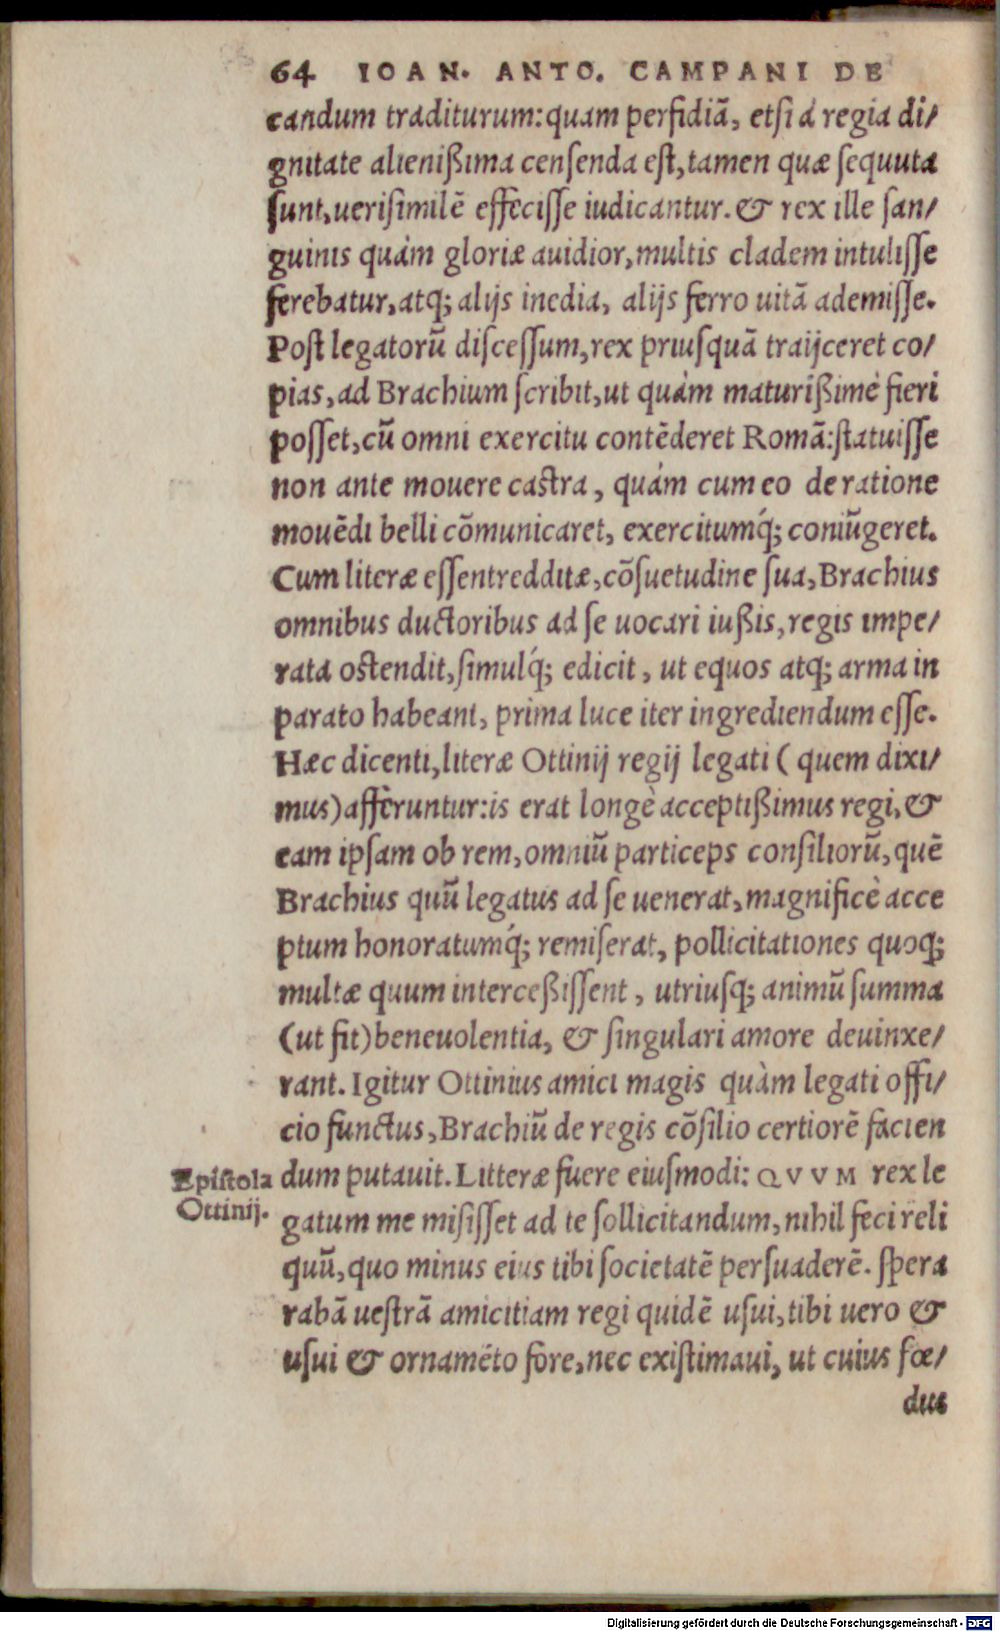 64 IOAN. ANTO. CAMPANI DE
candum traditurum: quam perfidiã, etsi à regia di/
gnitate alienißima censenda est, tamen quæ sequuta
sunt, uerisimilẽ effecisse iudicantur. & rex ille san/
guinis quàm gloriæ auidior, multis cladem intulisse
ferebatur, atq; alijs inedia, alijs ferro uitã ademisse.
Post legatorũ discessum, rex priusquã traijceret co/
pias, ad Brachium scribit, ut quàm maturißimè fieri
posset, cũ omni exercitu contẽderet Romã: statuisse
non ante mouere castra, quàm cum eo de ratione
mouẽdi belli cõmunicaret, exercitumq́; coniũgeret.
Cum literæ essent redditæ, cõsuetudine sua, Brachius
omnibus ductoribus ad se uocari iußis, regis impe/
rata ostendit, simulq́; edicit, ut equos atq; arma in
parato habeant, prima luce iter ingrediendum esse.
Hæc dicenti, literæ Ottinij regij legati ( quem dixi/
mus) afferuntur: is erat longè acceptißimus regi, &
eam ipsam ob rem, omniũ particeps consiliorũ, quẽ
Brachius quũ legatus ad se uenerat, magnificè acce
ptum honoratumq́; remiserat, pollicitationes quoq;
multæ quum interceßissent, utriusq; animũ summa
(ut fit) beneuolentia, & singulari amore deuinxe/
rant. Igitur Ottinius amici magis quàm legati offi/
cio functus, Brachiũ de regis cõsilio certiorẽ facien
Epistola Ottinij.
dum putauit. Litteræ fuere eiusmodi: QVVM rex le
gatum me misisset ad te sollicitandum, nihil feci reli
quũ, quo minus eius tibi societatẽ persuaderẽ. spera
rabã uestrã amicitiam regi quidẽ usui, tibi uero &
usui & ornamẽto fore, nec existimaui, ut cuius fœ/
dus
Digitalisierung gefördert durch die Deutsche Forschungsgemeinschaft - DFG